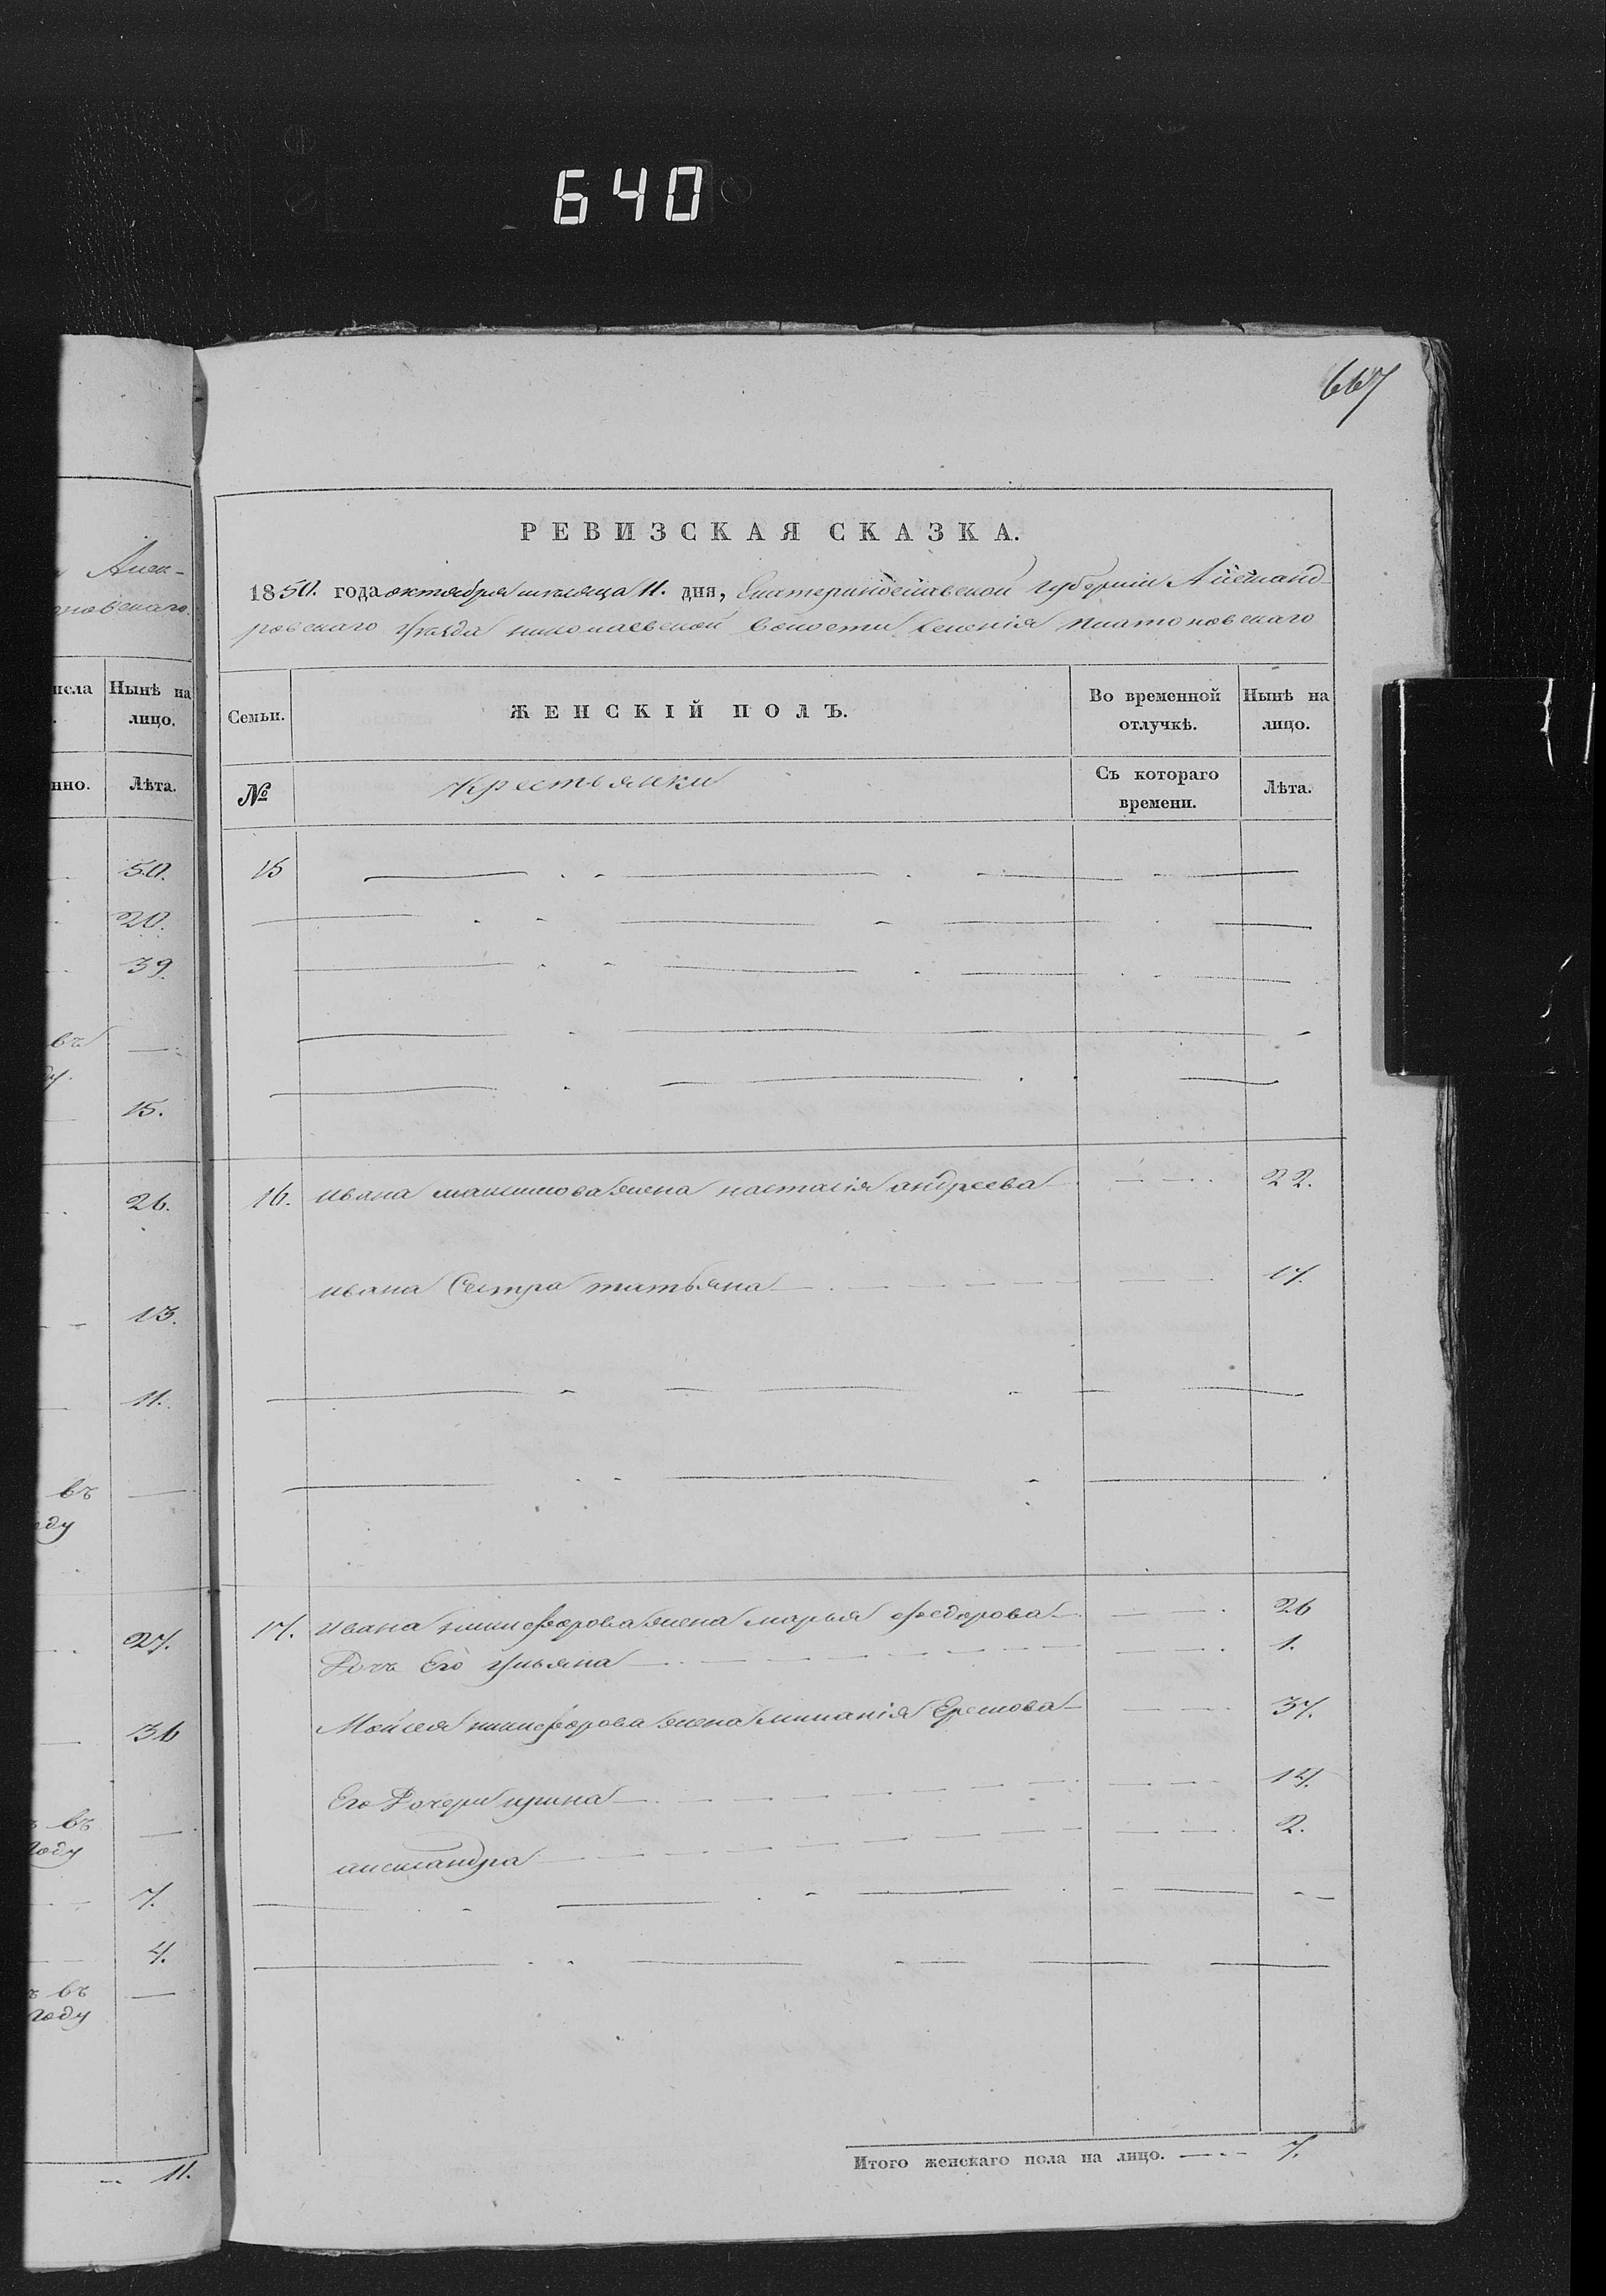 640
667
Алек-
новскаго.
РЕВИЗСКАЯ СКАЗКА.
1850. года октября месяца 11. дня, Екатеринославской губерніи Александ
ровскаго уезда николаевской волости селенія платоновскаго
Нынѣ на
лицо.
Лѣта.
50.
20.
39.
въ
15.
26.
13.
11.
въ
оду
27.
36
въ
году
7.
4.
въ
году
11.
Семьи.
ЖЕНСКІЙ ПОЛЪ.
Во временной
отлучкѣ.
Нынѣ на
лицо.
№
Крестьянки
Съ котораго
времени.
Лѣта.
15
16. ивана максимова жена настасія андреева 22.
ивана сестра татьяна 17.
17. Ивана никифорова жена марья федорова 26
Дочь Его ульяна 1.
Мойсея никифорова жена Еремова 37.
Его дочери ирина 14.
александра 2.
Итого женскаго пола на лицо. 7.